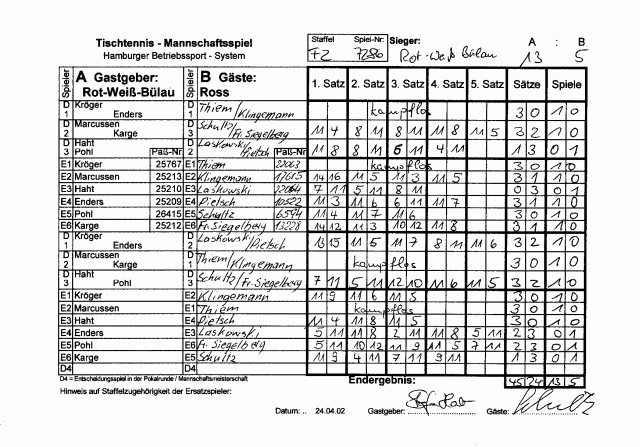 Tischtennis - Mannschaftsspiel Staffel Spiel-Nr: Sieger: A : B
Hamburger Betriebssport - System F2 7286 Rot-Weiß Bülau 13 5
Spieler A Gastgeber: Rot-Weiß-Bülau Spieler B Gäste: Ross 1. Satz 2. Satz 3. Satz 4. Satz 5. Satz Sätze Spiele
D 1 Kröger Enders D 1 Thiem/Klingemann kampflos 3 0 1 0
D 2 Marcussen Karge D 2 Schultz/Fr. Siegelberg 11 4 8 11 8 11 11 8 11 5 3 2 1 0
D 3 Haht Pohl Paß-Nr D 3 Laskowski/Pietsch Paß-Nr 11 8 8 11 6 11 4 11 1 3 0 1
E1 Kröger 25767 E1 Thiem 22063 kampflos 3 0 1 0
E2 Marcussen 25213 E2 Klingemann 17615 14 16 11 5 11 3 11 5 3 1 1 0
E3 Haht 25210 E3 Laskowski 7 11 5 11 8 11 0 3 0 1
E4 Enders 25209 E4 Pietsch 10522 11 3 11 6 6 11 11 7 3 1 1 0
E5 Pohl 26415 E5 Schultz 6594 11 4 11 7 11 6 3 0 1 0
E6 Karge 25212 E6 Fr. Siegelberg 13228 14 12 11 3 10 12 11 8 3 1 1 0
D 1 Kröger Enders D 2 Laskowski/Pietsch 13 15 11 5 11 7 8 11 11 6 3 2 1 0
D 2 Marcussen Karge D 1 Thiem/Klingemann kampflos 3 0 1 0
D 3 Haht Pohl D 3 Schultz/Fr. Siegelberg 7 11 5 11 12 10 11 6 11 5 3 2 1 0
E1 Kröger E2 Klingemann 11 9 11 6 11 5 3 0 1 0
E2 Marcussen E1 Thiem kampflos 3 0 1 0
E3 Haht E4 Pietsch 11 4 11 8 11 5 3 0 1 0
E4 Enders E3 Laskowski 5 11 11 8 2 11 11 8 5 11 2 3 0 1
E5 Pohl E6 Fr. Siegelberg 5 11 10 12 11 9 11 5 7 11 2 3 0 1
E6 Karge E5 Schultz 11 9 4 11 7 11 9 11 1 3 0 1
D4 D4
D4 = Entscheidungsspiel in der Pokalrunde / Mannschaftsmeisterschaft Endergebnis: 45 24 13 5
Hinweis auf Staffelzugehörigkeit der Ersatzspieler:
Datum: .. 24.04.02 Gastgeber: Gäste: Schultz